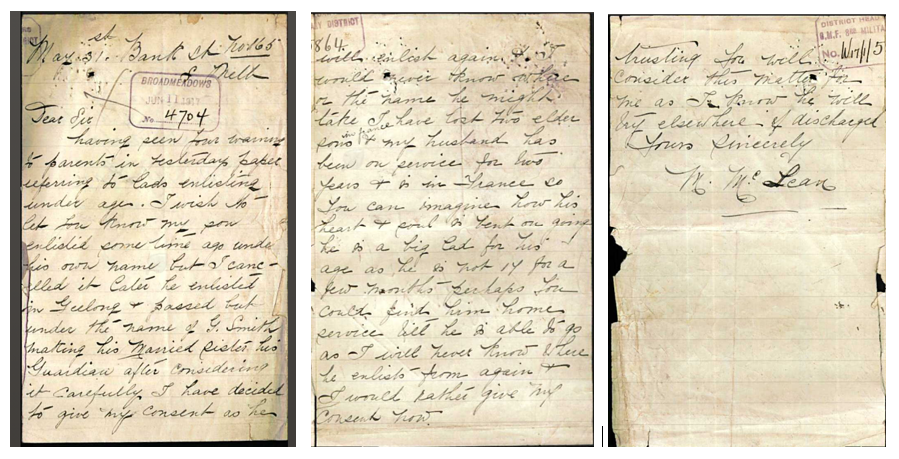 May 31st Bank St No 165
S. Melb
BROADMEADOWS
No. 4704
Dear Sir
having seen your warning
to parents in yesterday paper
referring to lads enlisting
under age. I wish to
let you know my son
enlisted some time ago under
his own name but I canc-
elled it later he enlisted
in Geelong & passed but
under the name of G. Smith
making his Married sister his
Guardian after considering
it carefully I have decided
to give my consent as he
DISTRICT
864.
will enlist again &
would never know where
or the name he might
take I have lost two elder
in France
sons & my husband has
been on service for two
years & is in France so
you can imagine how his
heart & soul is bent on going
he is a big lad for his
age as he is not 17 for a
few months perhaps you
could find him home
service till he is able to go
as I will never know where
he enlists from again &
I would rather give my
consent now.
DISTRICT HEAD
No.
trusting you will
consider this matter for
me as I know he will
try elsewhere if discharged
Yours Sincerely
M. McLean